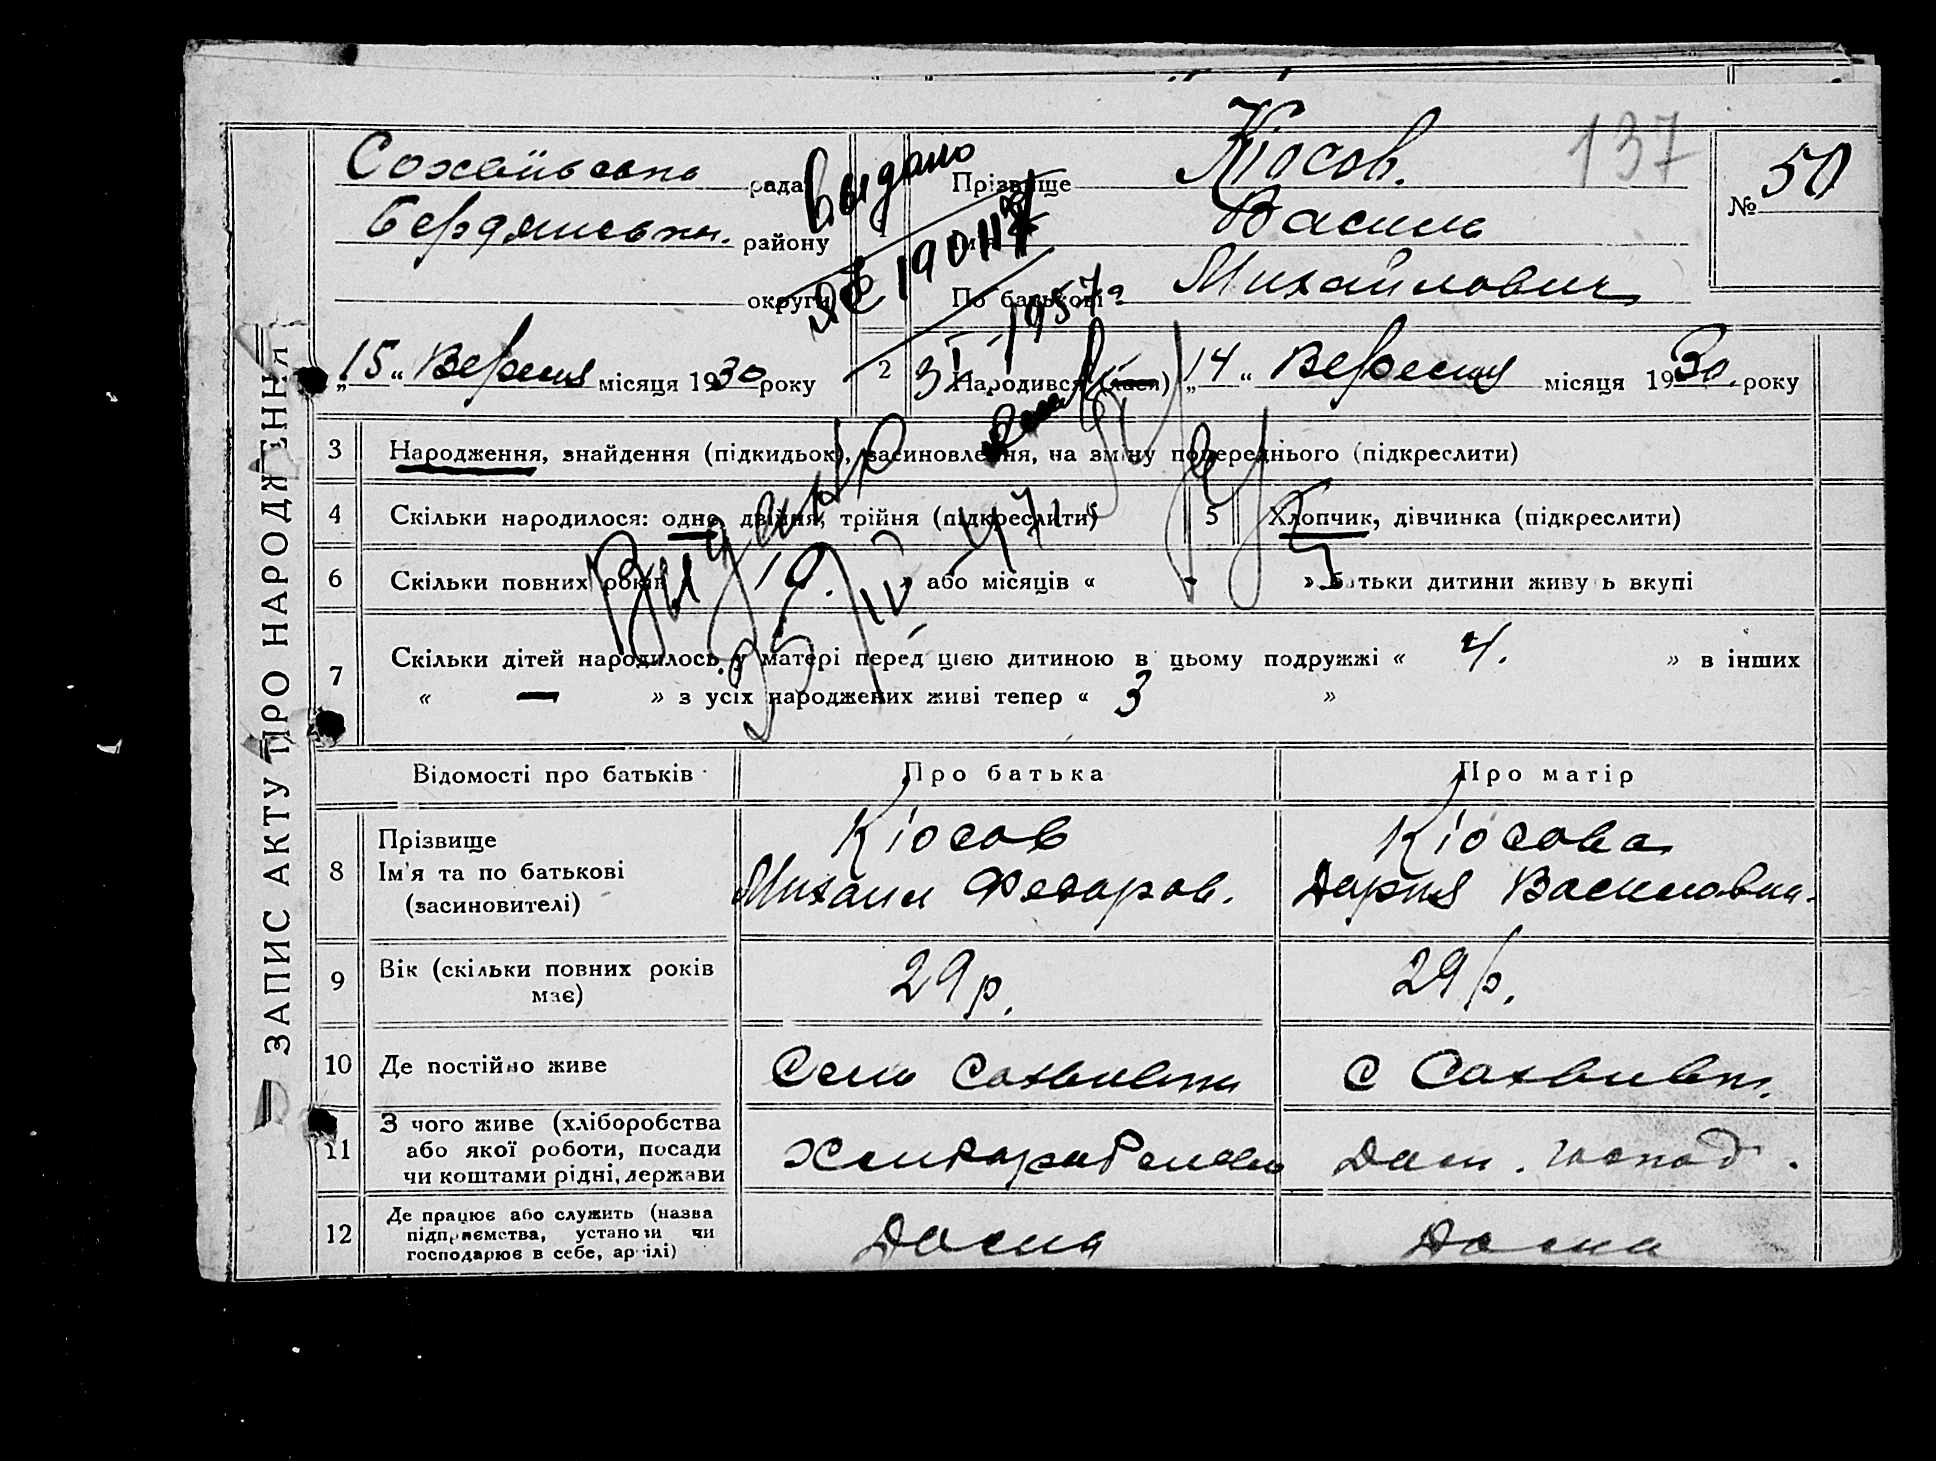 137
№ 50
ЗАПИС АКТУ ПРО НАРОДЖЕННЯ
рада
Бердянськ. району
округи
"15" Вересня місяця 1930 року
1
Прізвище Кіосов.
Ім'я Василь
По батькові Михайлович
Выдано
1957
2 Народився (лася) "14" Вересня місяця 1930 року
3 Народження, знайдення (підкидьок), засиновлення, на зміну попереднього (підкреслити)
Выдано
4 Скільки народилося: одно, двійня, трійня (підкреслити)
5 Хлопчик, дівчинка (підкреслити)
6 Скільки повних років 10. » або місяців « - » батьки дитини живуть вкупі
7 Скільки дітей народилось у матері перед цією дитиною в цьому подружжі « 4. » в інших
« — » з усіх народжених живі тепер « 3 »
Відомості про батьків Про батька Про матір
8 Прізвище Кіосов Кіосова
Ім'я та по батькові Михаил Федоров. Дария Василовна.
(засиновителі)
9 Вік (скільки повних років має) 29 р. 29 р.
10 Де постійно живе Село с
11 З чого живе (хліборобства
або якої роботи, посади
чи коштами рідні, держави Дом. господ.
12 Де працює або служить (назва
підприємства, установи чи
господарює в себе, артілі) Дома Дома